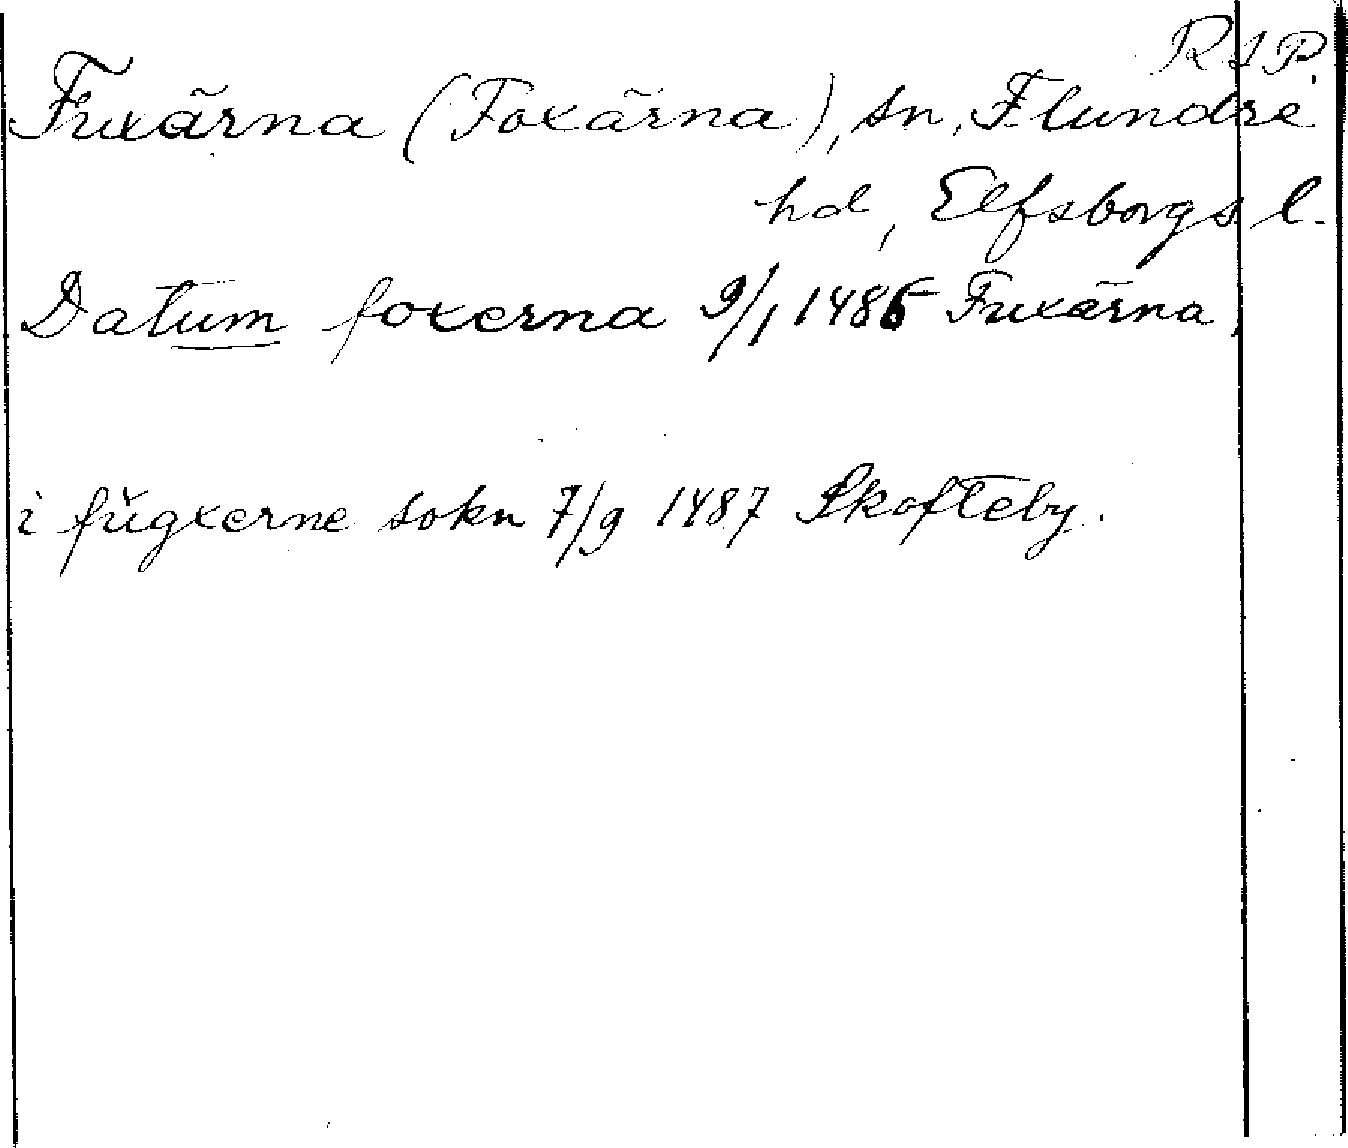 R I P.
Fuxärna (Foxärna), sn, Flundre
hd, Elfsborgs l.
Datum foxerna 9/1 1486 Fuxärna
i fůgxerne sokn 7/9 1487 Skofteby.